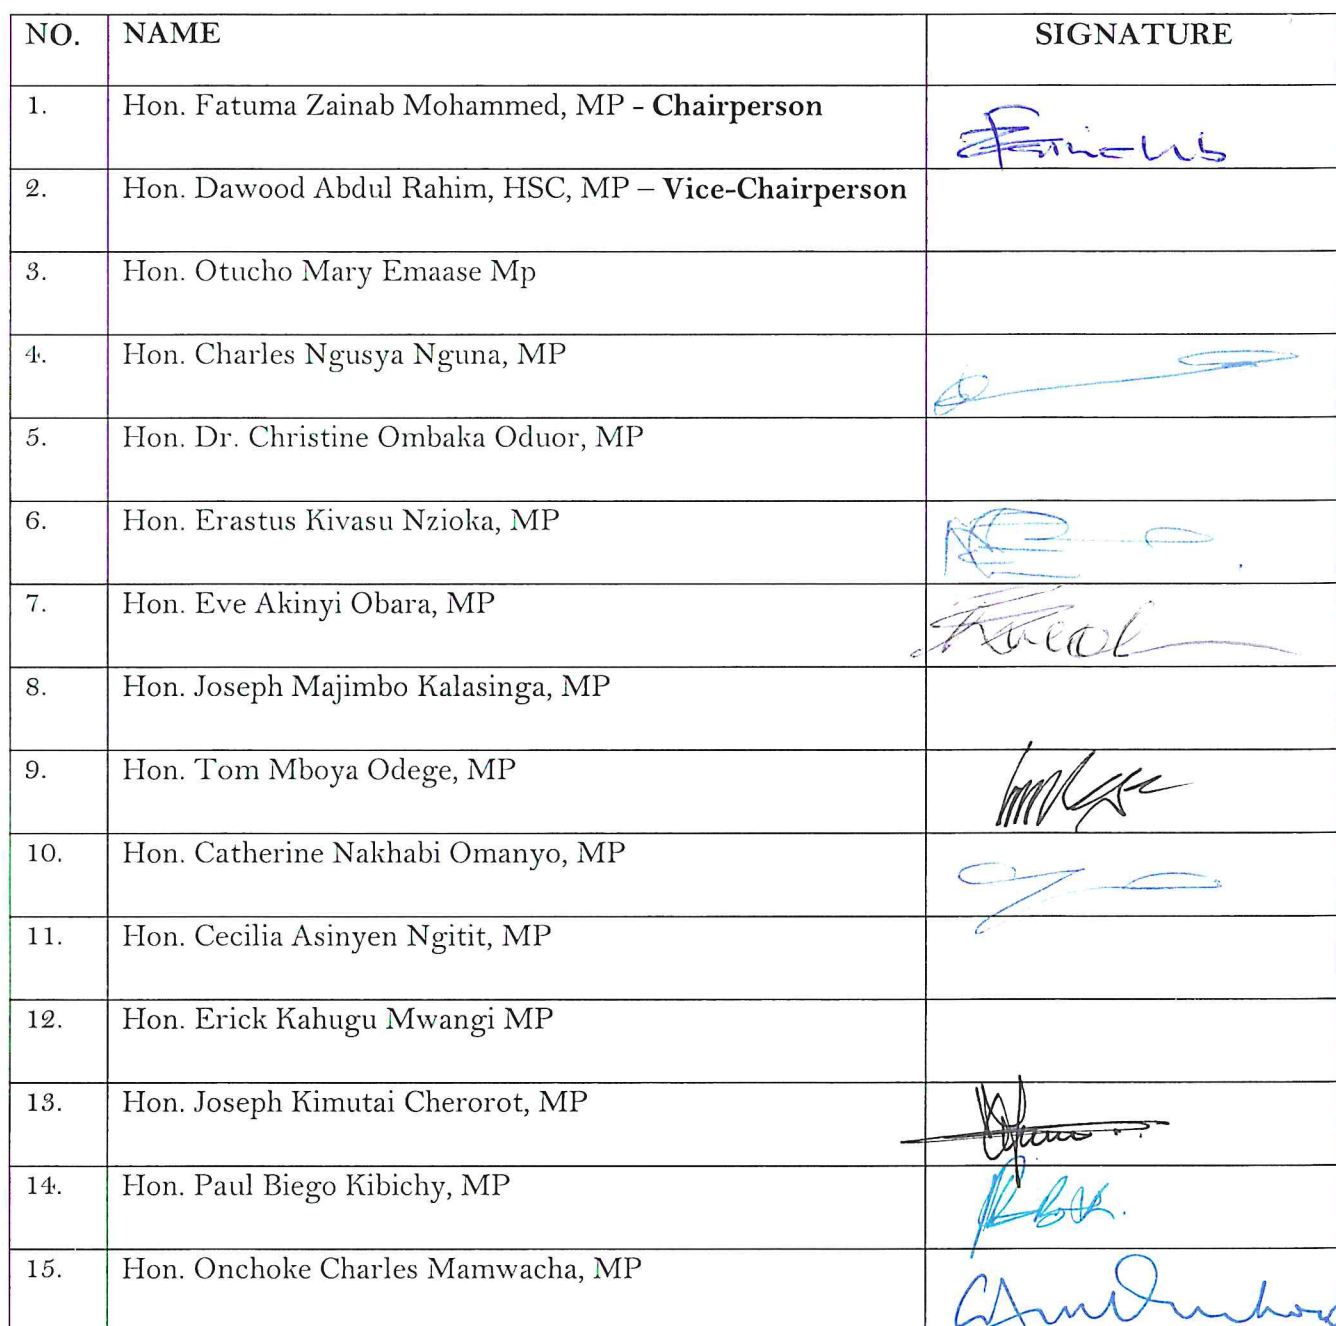 NO. NAME SIGNATURE
1. Hon. Fatuma Zainab Mohammed, MP - Chairperson
2. Hon. Dawood Abdul Rahim, HSC, MP – Vice-Chairperson
3. Hon. Otucho Mary Emaase Mp
4. Hon. Charles Ngusya Nguna, MP
5. Hon. Dr. Christine Ombaka Oduor, MP
6. Hon. Erastus Kivasu Nzioka, MP
7. Hon. Eve Akinyi Obara, MP
8. Hon. Joseph Majimbo Kalasinga, MP
9. Hon. Tom Mboya Odege, MP
10. Hon. Catherine Nakhabi Omanyo, MP
11. Hon. Cecilia Asinyen Ngitit, MP
12. Hon. Erick Kahugu Mwangi MP
13. Hon. Joseph Kimutai Cherorot, MP
14. Hon. Paul Biego Kibichy, MP
15. Hon. Onchoke Charles Mamwacha, MP